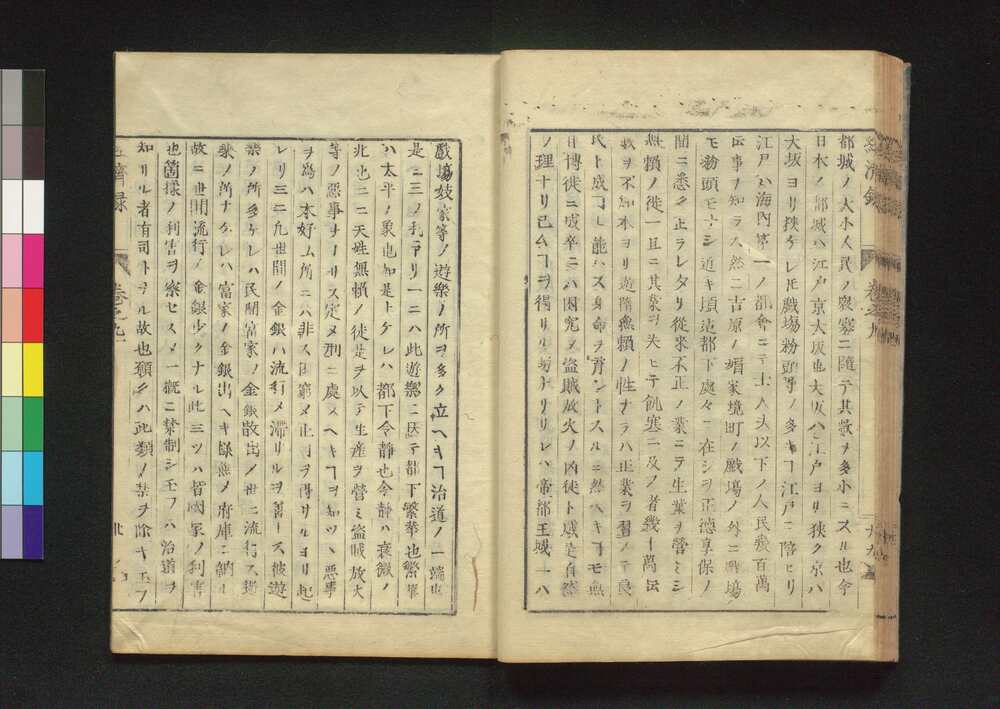 都城ノ大小人民ノ衆寡ニ隨テ其數ヲ多小ニスル也今
日本ノ都城ハ江戸京大坂也大坂ハ江戸ヨリ狹ク京ハ
大坂ヨリ狹ケレ𪜈戲塲粉頭等ノ多キヿ江戸ニ陪セリ
江戸ハ海内第一ノ都會ニテ士人ヲ以下ノ人民數百萬
事ヲ知ラス然ニ吉原ノ娼家境町ノ戲塲ノ外ニ戲塲
モ粉頭モナシ近キ頃迠都下處々ニ在シヲ正德享保ノ
間ニ悉ク止ラレタリ從來不正ノ業ニテ生業ヲ營ミシ
無頼ノ徒一旦ニ其業ヲ失ヒテ飢寒ニ及ノ者幾十萬
數ヲ不知本ヨリ遊惰無頼ノ性ナラハ正業ヲ習ノテ良
民ト成ヿ能ハス身命ヲ育ントスルニ然ヘキヿモ無
ノ博徒ニ成卒ニハ困究ノ盗賊放火ノ凶徒ト成是自然
ノ理ナリ已ムヿヲ得サル塲ナリサレハ帝都王城ハ
經濟録
卷之九
戲塲妓家等ノ遊樂ノ所ヲ多ク立ヘキヿ治道ノ一端也
是ニ三ノ利アリ一ニハ此遊樂ニ因テ都下繁華也繁華
ハ太平ノ象也如是トケレハ都下令静也令静ハ衰微ノ
兆也二ニ天姓無頼ノ徒是ヲ以テ生産ヲ營ミ盗賊放火
等ノ惡事ヲナサス定メ刑ニ處スヘキヿヲ知ツヽ惡事
ヲ爲ハ本好ム所ニハ非ス困窮メ止ヿヲ得サルヨリ起
レリ三ニ凢世間ノ金銀ハ流行メ滯サルヲ善トス彼遊
樂ノ所多ケレハ民間富家ノ金銀散出ノ世ニ流行ス遊
樂ノ所ナケレハ富家ノ金銀出ヘキ様無メ府庫ニ納ル
故ニ世間流行ノ金銀少クナル此三ツハ皆國家ノ利害
也箇様ノ利害ヲ察セスメ一概ニ禁制シ玉フハ治道ヲ
知サル者有司トナル故也願クハ此類ノ禁ヲ除キ玉フ
濟録
卷之九